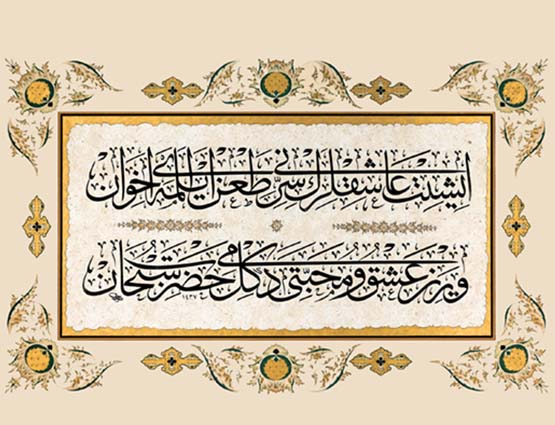 ایشیت عاشقلرك سرّنی طعن ایلمه ای اخوان
ویرن عشق و محبتی دكلمی حضرت سبحان
١٤٣٧